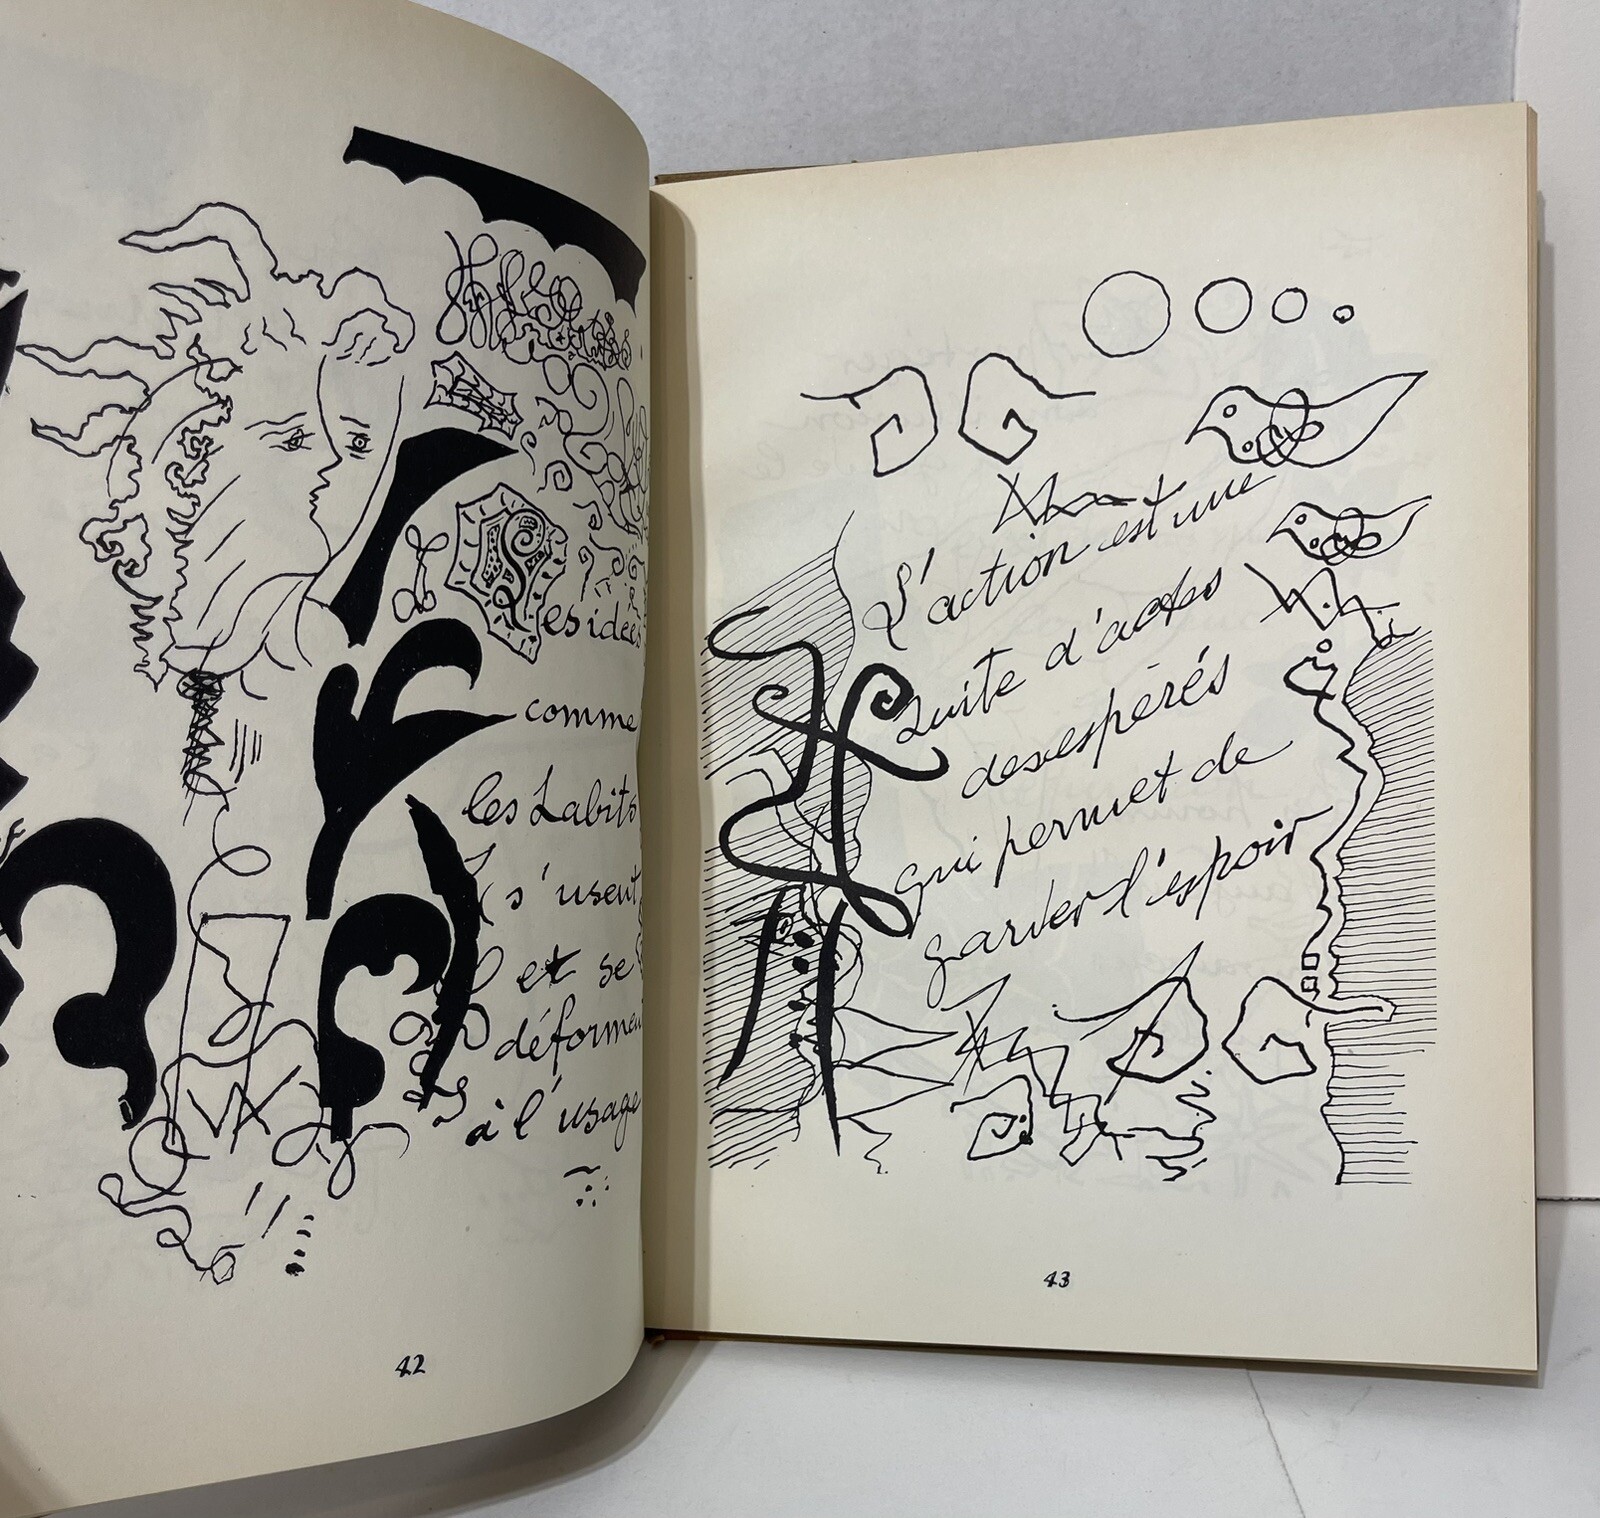 Les idées
comme
les habits
s'usent
et se
déformen
à l'usage
42
L'action est une
suite d'actes
desespérés
qui permet de
garder l'espoir
43